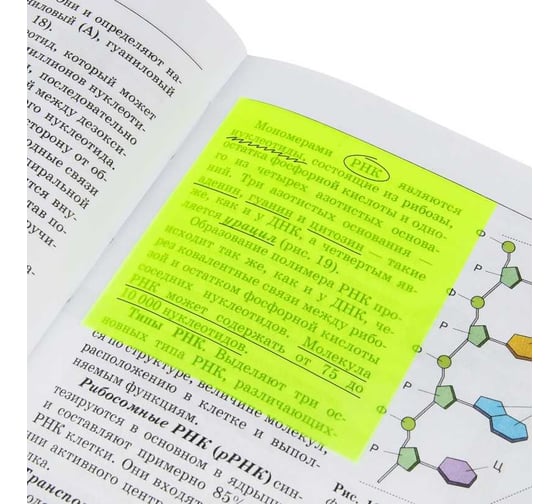 Они и определяют на-
ниловый (А), гуаниловый
18).
отид, который может
миллионов нуклеоти-
, последовательно
й между дезокси-
го нуклеотида.
торону от об-
одные связи
пиральной
тся вну-
тав по-
ручи-
Мономерами РНК являются
нуклеотиды, состоящие из рибозы,
остатка фосфорной кислоты и одно-
го из четырех азотистых основа-
ний. Три азотистых основания —
аденин, гуанин и цитозин — такие
же, как и у ДНК, а четвертым яв-
ляется урацил (рис. 19).
Образование полимера РНК про-
исходит так же, как и у ДНК, че-
рез ковалентные связи между рибо-
зой и остатком фосфорной кислоты
соседних нуклеотидов. Молекула
РНК может содержать от 75 до
10 000 нуклеотидов.
Типы РНК. Выделяют три ос-
новных типа РНК, различающих-
ся по структуре, величине молекул,
расположению в клетке и выпол-
няемым функциям.
Рибосомные РНК (рРНК) син-
тезируются в основном в ядрыш-
и составляют примерно 85%
РНК клетки. Они входят
нии активного центр
лка.
Транспо
Ф
Р
Ф
Р
Ф
Р
Ф
Р
Ц
Рис.